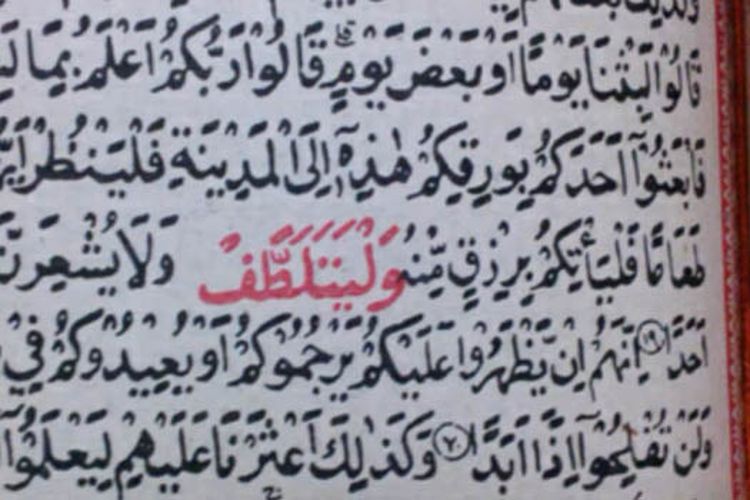 قَالُوا لَبِثْنَا يَوْمًا اَوْ بَعْضَ يَوْمٍ ۚ قَالُوا رَبُّكُمْ اَعْلَمُ بِمَا
فَابْعَثُوْٓا اَحَدَكُمْ بِوَرِقِكُمْ هٰذِهٖٓ اِلَى الْمَدِيْنَةِ فَلْيَنْظُرْ
طَعَامًا فَلْيَأْتِكُمْ بِرِزْقٍ مِّنْهُ وَلْيَتَلَطَّفْ وَلَا يُشْعِرَنَّ
اَحَدًا ۝١٩ اِنَّهُمْ اِنْ يَّظْهَرُوْا عَلَيْكُمْ يَرْجُمُوْكُمْ اَوْ يُعِيْدُوْكُمْ فِيْ
وَلَنْ تُفْلِحُوْٓا اِذًا اَبَدًا ۝٢٠ وَكَذٰلِكَ اَعْثَرْنَا عَلَيْهِمْ لِيَعْلَمُوْٓا